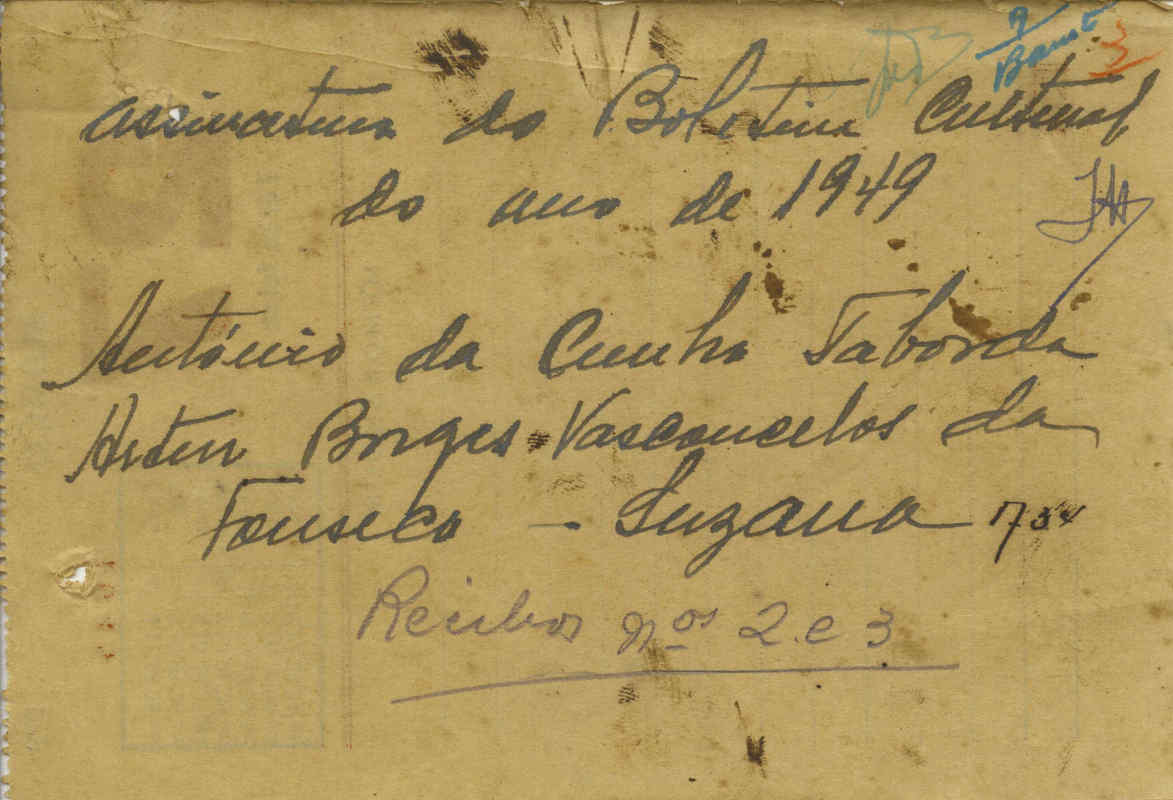 9
Barrote
3
assinatura do Boletim Cultural
do ano de 1949
António da Cunha Taborda
Artur Borges Vasconcelos da
Fonseca - Suzana 1754
Recibos nos 2 e 3